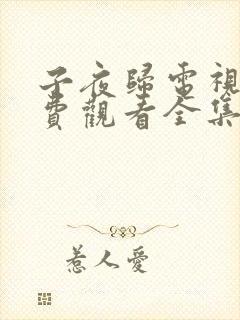 子夜歸電視
費觀看全集
惹人愛